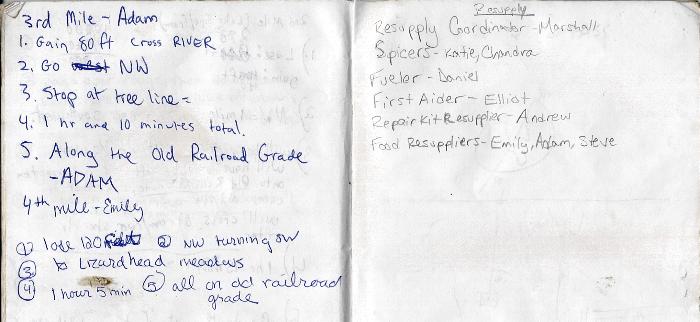 3rd Mile - Adam
1. Gain 80 ft cross RIVER
2. Go NW
3. Stop at tree line =
4. 1 hr and 10 minutes total.
5. Along the Old Railroad Grade
- ADAM
4th mile - Emily
① lose 120 ② NW turning SW
③ to Lizardhead meadows
④ 1 hour 5 min ⑤ all on old railroad
grade
Resupply
Resupply Coordinator - Marshall
Spicers - Katie, Chandra
Fueler - Daniel
First Aider - Elliot
Repair Kit Resupplier - Andrew
Food Resuppliers - Emily, Adam, Steve